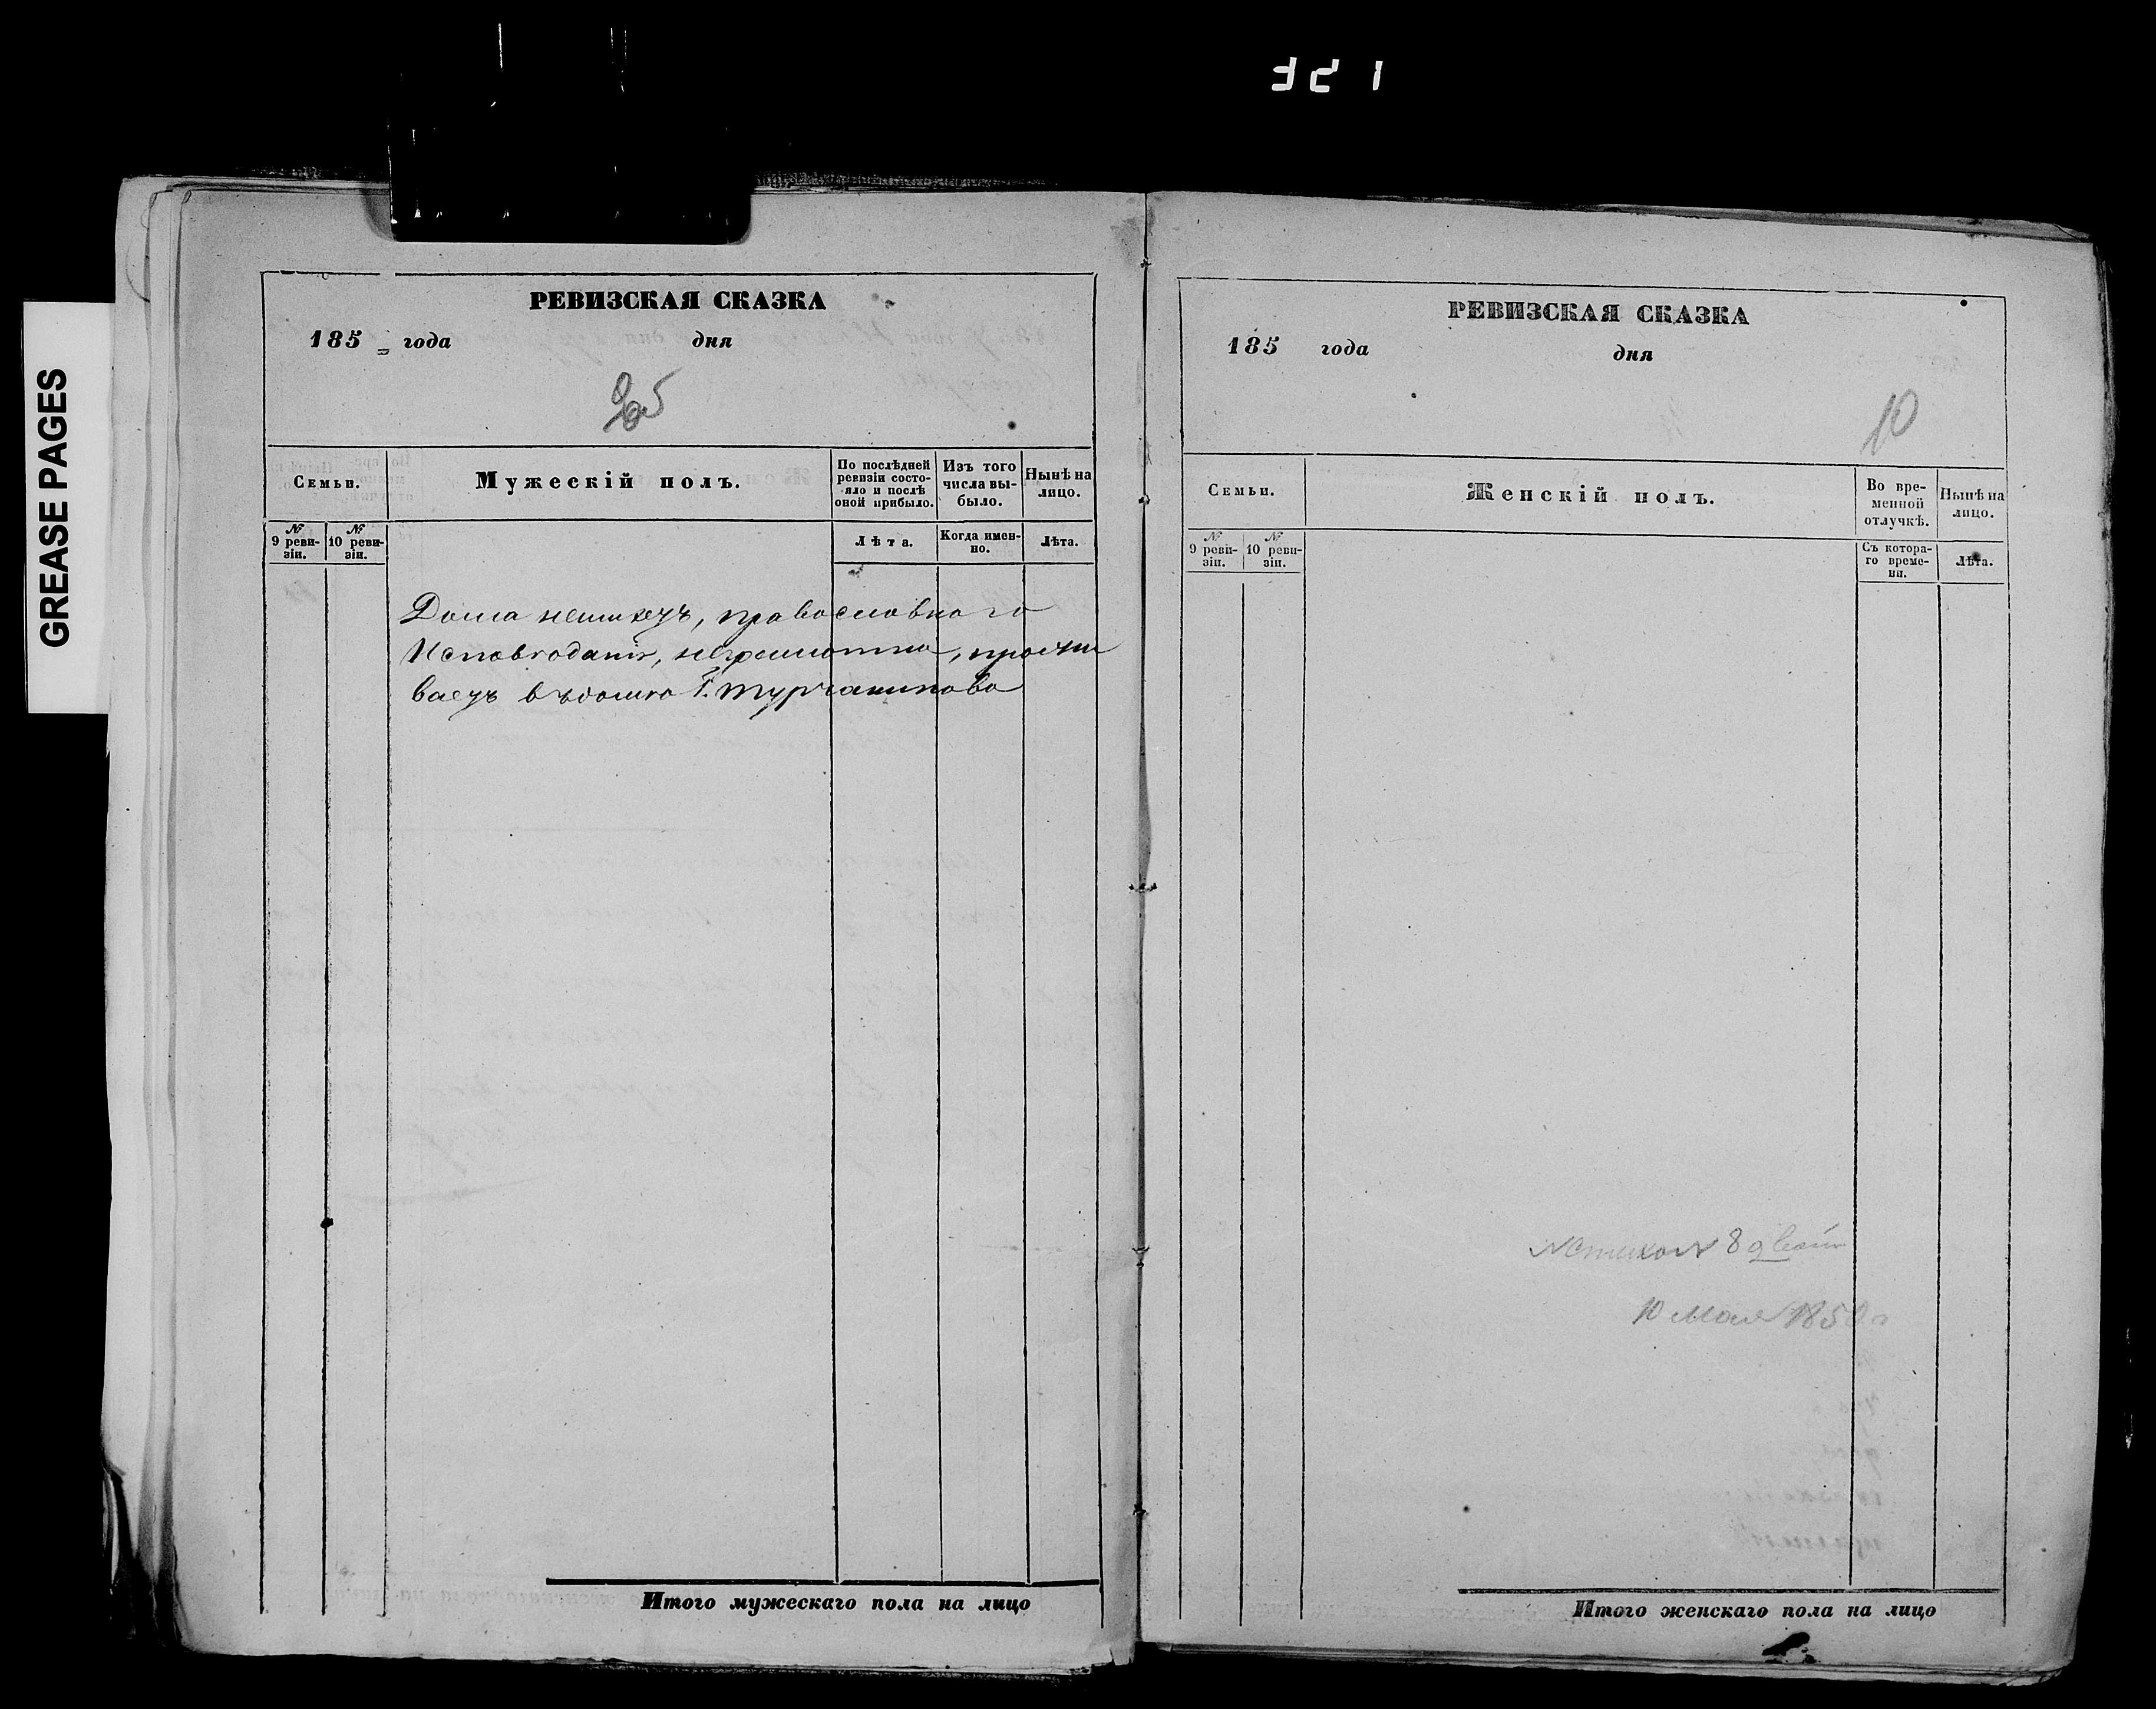 321
GREASE PAGES
РЕВИЗСКАЯ СКАЗКА
185 года дня
Семьи.
Мужескій полъ.
По послѣдней ревизіи состо-
яло и послѣ
оной прибыло.
Изъ того
числа вы-
было.
Нынѣ на
лицо.
№
9 реви-
зіи.
№
10 реви-
зіи.
Лѣта.
Когда имен-
но.
Лѣта.
Дома неимеетъ, православнаго
Исповеданія, неграмотна, прожи
ваетъ въ доме Г. Турчанинова
Итого мужескаго пола на лицо
РЕВИЗСКАЯ СКАЗКА
185 года дня
10
Семьи.
Женскій полъ.
Во вре-
менной
отлучкѣ.
Нынѣ на
лицо.
№
9 реви-
зіи.
№
10 реви-
зіи.
Съ котора-
го време-
ни.
Лѣта.
10 Мая 185
Итого женскаго пола на лицо